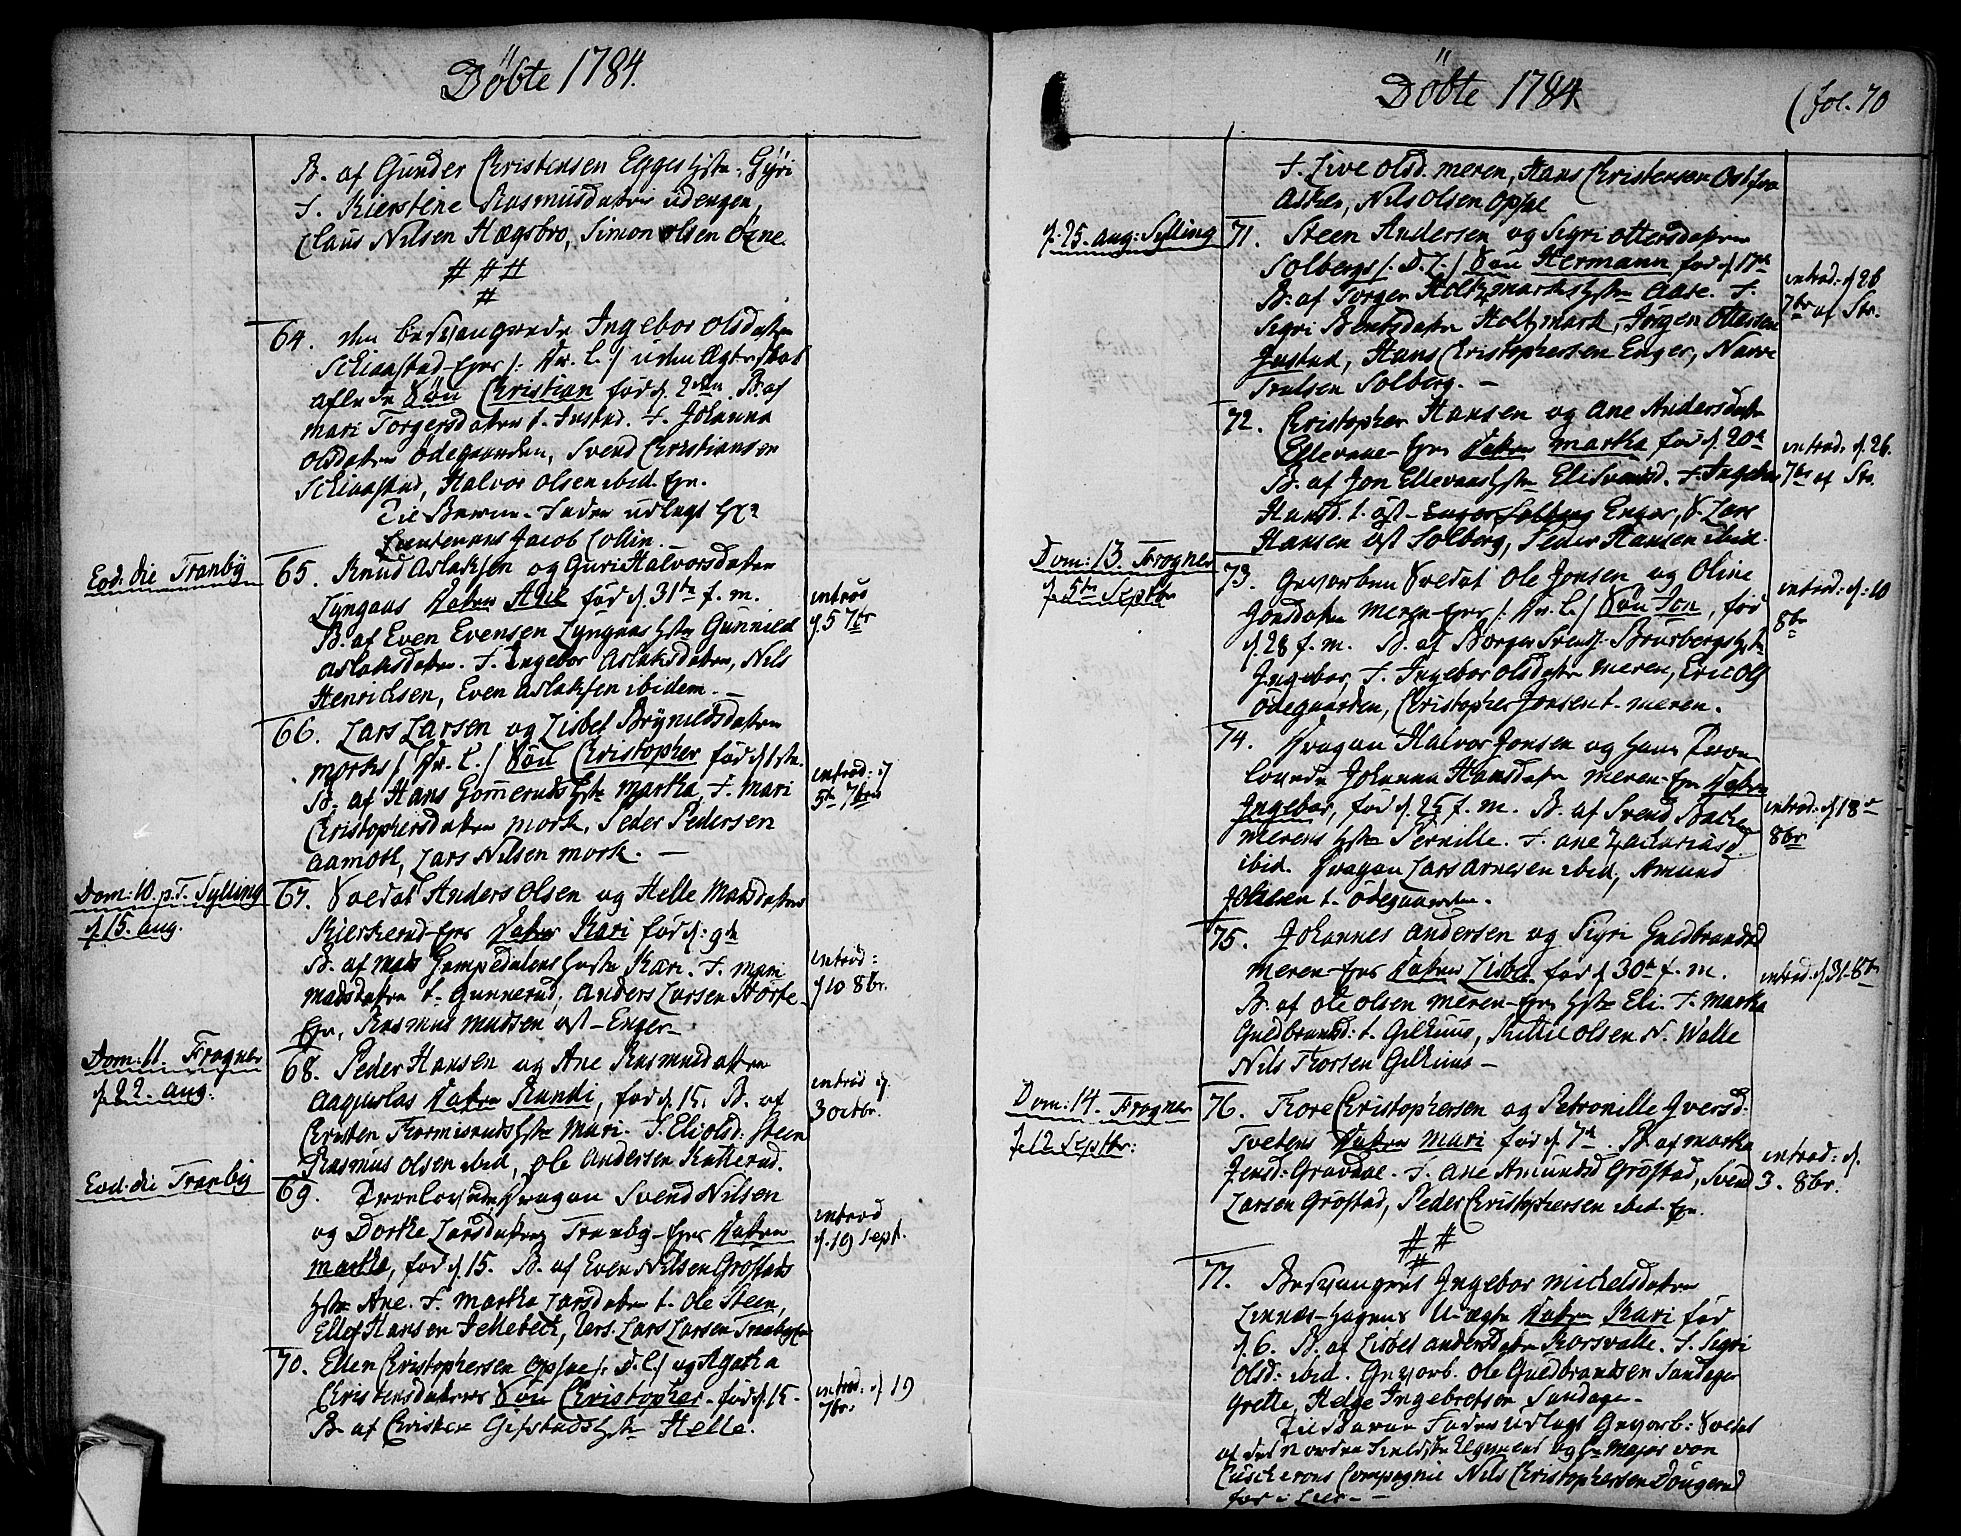 Döbte 1784.
B. af Gunder Christensen Egges Hstr: Gÿri
F. Kierstine Rasmusdatter udengen,
Claus Nilsen Hægsbro, Simon Olsen Öÿne.
# # #
#
64. den besvangrede Ingebor Olsdatter
Schiaastad-Ejer /: Kr. L. / uden Ægteskab
aflede Sön Christian föd d. 2den B. af
Mari Torgersdatter t. Justad. F. Johanna
Olsdatter Ödegaarden, Svend Christiansen
Schiaastad, Halvor Olsen ibid. Ejer.
Til Barne-Fader udlagt Hr
Lieutenant Jacob Collin.
Eod. die Tranbÿ
65. Knud Aslaksen og Guri Halvorsdatter
Lÿngaas Datter Ane föd d. 31te f. m.
B. af Even Evensen Lÿngaas Hstr Gunnild
Aslaksdatter. F. Ingebor Aslaksdatter, Nils
Henrichsen, Even Aslaksen ibidem. –
introd
d. 5 7br
66. Lars Larsen og Lisbet Brÿnildsdatter
Morks / Kr. L. / Sön Christopher föd d. 1ste.
B. af Hans Gommeruds Hstr Martha, F. Mari
Christophersdatter Mork, Peder Pedersen
Aamodt, Lars Nilsen Mork. –
introd: d
5te 7bris
Dom: 10. p. T. Sylling
d. 15. Aug.
67. Soldat Anders Olsen og Helle Madsdatter
Kierkerud-Ejes Datter Kari föd d: 9de
B. af Mads Hstr Kari. F. Mari
Madsdatter t. Gunnerud, Anders Larsen Hörte-
Ejer, Rasmus Madsen Øst-Enger-
introd:
d 10 8br.
Dom: 11. Frogner
d. 22. Aug:
68. Peder Hansen og Ane Rasmusdatter
Datter Randi, föd d. 15. B. af
Christen Hstr Mari. F. Eli Olsd: Steen
Rasmus Olsen ibid, Ole Andersen Kitterud.
introd d.
3 octbr.
Eod. die Tranbÿ
69. Troelovede Dragon Svend Nilsen
og Dorthe Larsdatter Tranbÿ-Ejes Datter
Martha, föd d. 15. B. af Even Nilsen Gröstads
Hstr Ane. F. Martha Larsdatter t. Ole Steen,
Ellef Hansen Jellebech, Lars Larsen Tranbÿ
introd
d. 19 Sept.
70. Ellen Christophersen Opsae /: D. L. / og Agatha
Christensdatters Sön Christopher. föd d. 15.
B. af Christen Gifstads Hstr Helle.
introd: d 19
7br.
Döbte 1784.
(fol. 70
F. Live Olsd. Meren, Hans Christensen Øst fra
Asker, Nils Olsen Opsae
d. 25. Aug: Sylling
71. Steen Andersen og Sigri Ottersdatter
Solbergs /. D. L. / Sön Hermann föd d. 17de
B. af Torger Holtzmarks Hstr Aase. F.
Sigri Bentsdatter Holtzmark, Jörgen Ottersen
Justad, Hans Christophersen Enger, Narve
Trulsen Solberg. –
introd: d 26
7br af Str.
72. Christopher Hansen og Ane Andersdatter
Ellevaae-Ejes Datter Martha, föd d. 20de
B. af Jon Ellevaas Hstr Eli Svensd. F. Ingebor
Hansd. t. Øst- Enger, S. Lars
Hansen Øst Solberg, Peder Hansen ibid.
introd: d. 26.
7br af Str.
Dom: 13. Frogner
d. 5te Septbr
73. Soldat Ole Jonsen og Oline
Jonsdatter Meren-Ejes /. Kr. L. / Sön Jon, föd
d. 28 f. m. B. af Börger Svends. Brusbergs Hstr
Ingebor, F. Ingebor Olsdatter Meren, Eric Ols
Ödegaarden, Christopher Jonsen t. Meren.
introd: d: 10
8br
74. Dragon Halvor Jonsen og hans Troe-
lovede Johanna Hansdatter Meren-Ejes Datter
Ingebor, föd d. 25 f. m. B. af Svend Bache
Merens Hstr Pernille. F. Ane Zachariasd.
ibid. Dragon Lars Arnesen ibid, Amund
Johnsen t. Ödegaarden.
introd: d 18de
8br
75. Johannes Andersen og Sigri Guldbrandsd
Meren-Ejes Datter Lisbet. föd d 30te f. m.
B. af Ole Olsen Meren-Ejes Hstr Eli. F. Martha
Guldbrandsd: t. Gilhuus, Kittil Olsen N. Walle
Nils Thorsen Gilhuus –
introd. d. 31. 8br
Dom: 14. Frogner
d. 12 Septbr:
76. Thore Christophersen og Petronille Iversd.
Tvetens Datter Mari föd d. 7de. B. af Martha
Jensd: Gravdal. F. Ane Amundsd Gröstad, Svend
Larsen Gröstad, Peder Christophersen ibid. Ejer.
introd: d.
3. 8br.
# #
#
77. Besvangret Ingebor Michelsdatter
Linnæs-Hagens U-ægte Datter Kari föd
d. 6. B. af Lisbet Andersdatter Korsvalle. F. Sigri
Olsd: ibid. Ole Guldbrandsen Sandager
Grette, Helge Ingebretsen Sandage-
Til Barne Fader udlagt Soldat
af det Nordenfieldske Regiment og Hr Major von
Compagnie Nils Christophersen
her i Lier. –